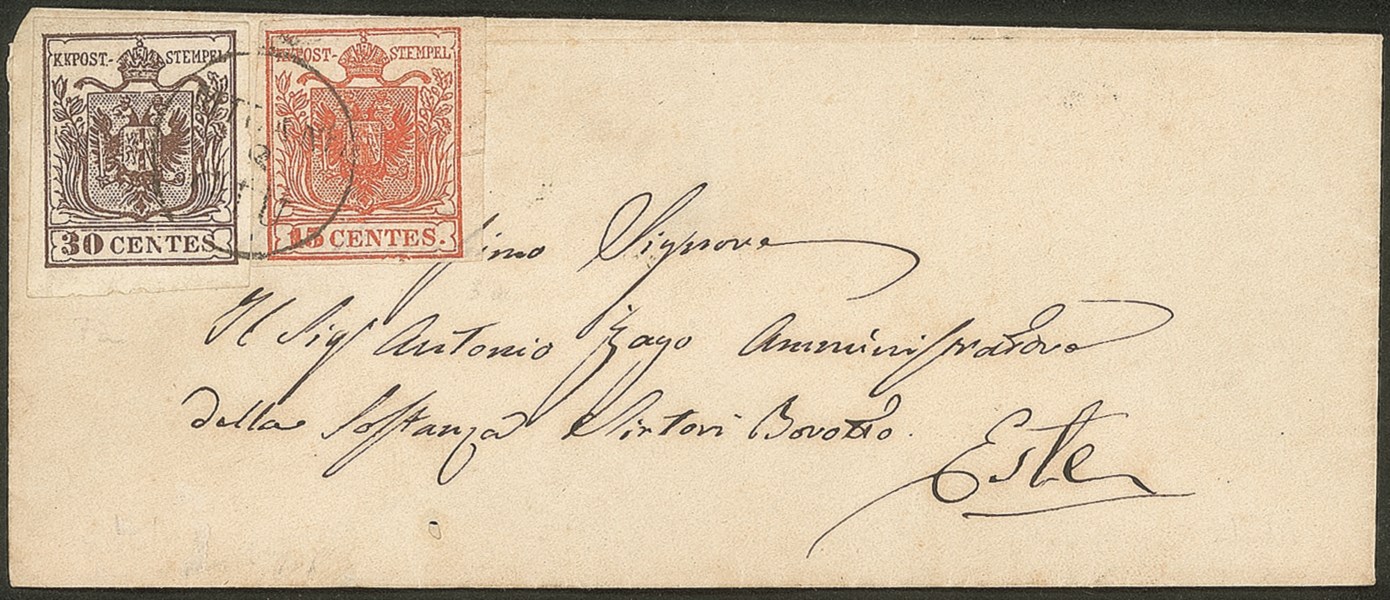 KKPOST.- STEMPEL
30 CENTES.
KKPOST- STEMPEL
15 CENTES.
Signore
Il Sigr Antonio Zago Amministratore
della Sostanza
Este